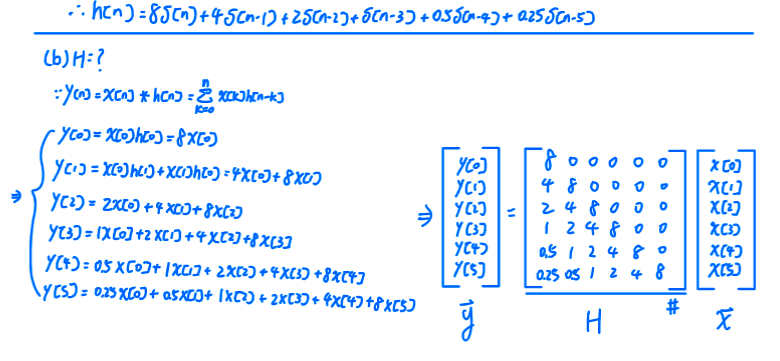 ∴ h[n] = 8δ[n] + 4δ[n-1] + 2δ[n-2] + δ[n-3] + 0.5δ[n-4] + 0.25δ[n-5]
(b) H = ?
∵ y[n] = x[n] * h[n] = Σ_{k=0}^{n} x[k]h[n-k]
⇒ { y[0] = x[0]h[0] = 8x[0]
y[1] = x[0]h[1] + x[1]h[0] = 4x[0] + 8x[1]
y[2] = 2x[0] + 4x[1] + 8x[2]
y[3] = 1x[0] + 2x[1] + 4x[2] + 8x[3]
y[4] = 0.5x[0] + 1x[1] + 2x[2] + 4x[3] + 8x[4]
y[5] = 0.25x[0] + 0.5x[1] + 1x[2] + 2x[3] + 4x[4] + 8x[5]
y[0] 8 0 0 0 0 0 x[0]
y[1] 4 8 0 0 0 0 x[1]
⇒ y[2] = 2 4 8 0 0 0 x[2]
y[3] 1 2 4 8 0 0 x[3]
y[4] 0.5 1 2 4 8 0 x[4]
y[5] 0.25 0.5 1 2 4 8 x[5]
y⃗ H # x⃗